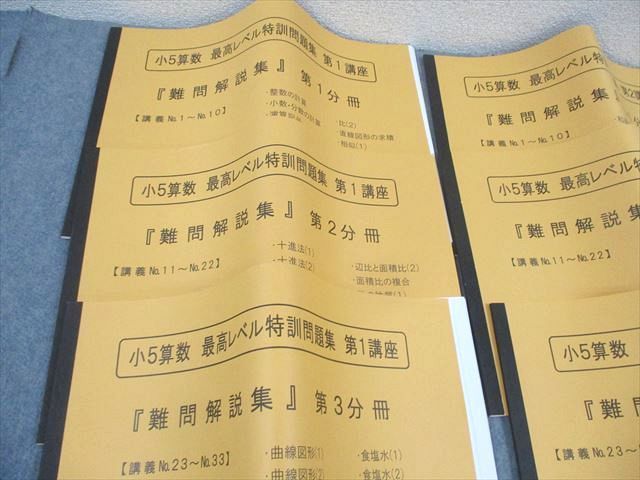 小5算数 最高レベル特訓問題集 第1講座
『難問解説集』 第1分冊
【講義No.1～No.10】
・整数の計算
・小数・分数の計算
・演算記号
・比(2)
・直線図形の求積
・相似(1)
小5算数 最高レベル特訓問題集 第1講座
『難問解説集』 第2分冊
【講義No.11～No.22】
・十進法(1)
・十進法(2)
・辺比と面積比(2)
・面積比の複合
小5算数 最高レベル特訓問題集 第1講座
『難問解説集』 第3分冊
【講義No.23～No.33】
・曲線図形(1)
・曲線図形(2)
・食塩水(1)
・食塩水(2)
小5算数 最高レベル特
第2講
『難問解説集
【講義No.1～No.10】
小5算数 最高レベル
『難問解説集
【講義No.11～No.22】
小5算数 最
『難問
【講義No.23～